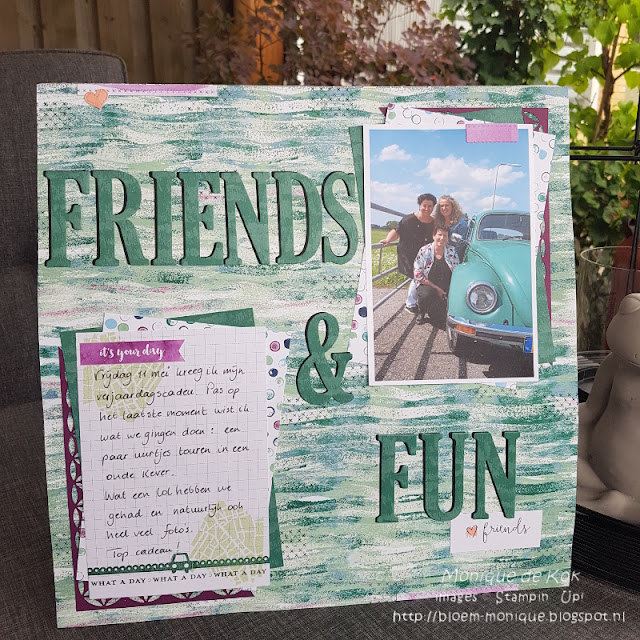 FRIENDS
&
FUN
friends
it's your day
Vrijdag 11 mei kreeg ik mijn
verjaardagscadeau. Pas op
het laatste moment wist ik
wat we gingen doen: een
paar uurtjes touren in een
oude Kever.
Wat een lol hebben we
gehad en natuurlijk ook
heel veel foto's.
Top cadeau
WHAT A DAY WHAT A DAY WHAT A DAY
Monique de Kok
images - Stampin' Up!
http://bloem-monique.blogspot.nl